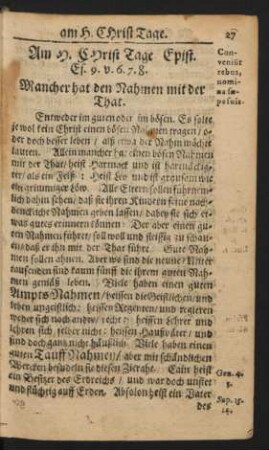 am H. CHrist Tage.
27
Am H. CHrist Tage Epist.
Es. 9. v. 6. 7. 8.
Mancher hat den Nahmen mit der
That.
Conveniũt
rebus,
nomi-
na sæ-
pe suis.
Entweder im guten oder im bösen. Es solte
je wol kein Christ einen bösen Nahmen tragen / o-
der doch besser leben / als etwa der Nahm möchte
lauten. Allein mancher hat einen bösen Nahmen
mit der That / heist Hartman und ist hartnäckig-
ter / als ein Felß: Heist Leo und ist grausem wie
ein grimmiger Löw. Alle Eltern sollen fürnem-
lich dahin sehen / daß sie ihren Kindern keine nach-
denckliche Nahmen geben lassen / dabey sie sich et-
was gutes erinnern können: Der aber einen gu-
ten Nahmen führet / soll woll und fleissig zu schau-
en / daß er ihn mit der That führe. Gute Nah-
men sollen ahnen. Aber wo sind die neune? Unter
tausenden sind kaum fünff die ihrem guten Nah-
men gemäß leben. Viele haben einen guten
Ampts Nahmen / heissen die Geistlichen / und
leben ungeistlich: heissen Regenten / und regieren
weder sich noch andre / recht: heissen Lehrer und
lehren sich selber nicht: heissen Haußväter / und
sind doch gantz nicht häußlich. Viele haben einen
guten Tauff Nahmen / aber mit schändlichen
Wercken besudeln sie diesen Zieraht. Cain heist
ein Besitzer des Erdreichs / und war doch unstet
und flüchtig auff Erden. Absolon heist ein Vater
des
Gen. 4.
Sap. 15.
14.